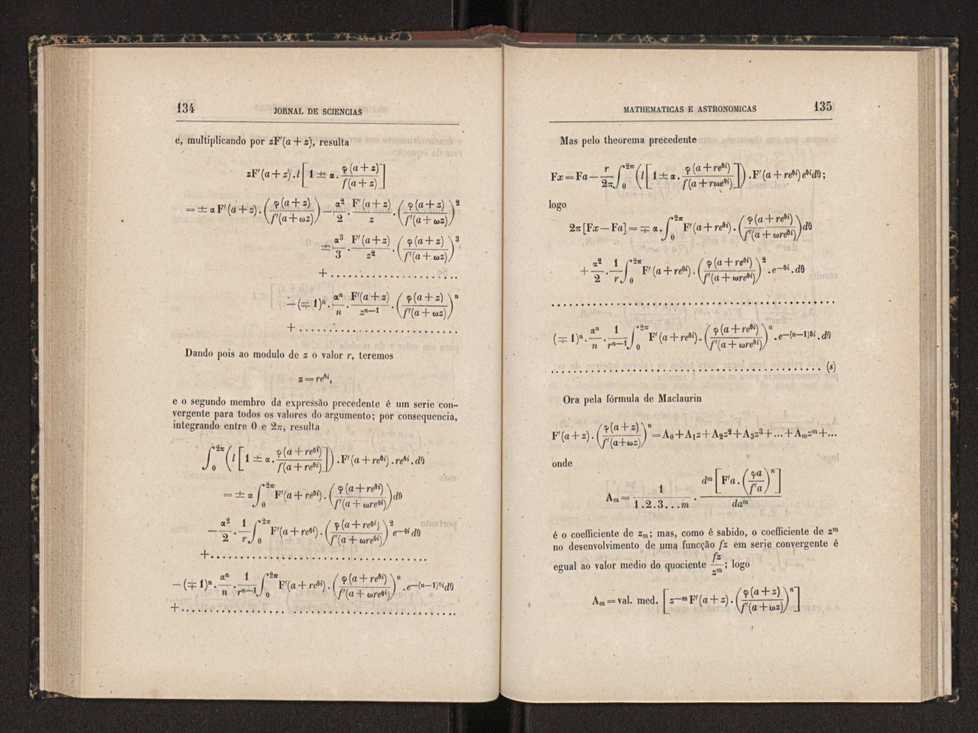 134
JORNAL DE SCIENCIAS
e, multiplicando por zF'(a + z), resulta
zF'(a + z) . l [1 ± α . φ(a + z) / f(a + z)]
= ± α F'(a + z) . (φ(a + z) / f'(a + ωz)) − α²/2 . F'(a + z)/z . (φ(a + z) / f'(a + ωz))²
± α³/3 . F'(a + z)/z² . (φ(a + z) / f'(a + ωz))³
+ . . . . . . . . . . . . . . . . . . . .
− (∓ 1)ⁿ . αⁿ/n . F'(a + z)/zⁿ⁻¹ . (φ(a + z) / f'(a + ωz))ⁿ
+ . . . . . . . . . . . . . . . . . . . . . . . .
Dando pois ao modulo de z o valor r, teremos
z = re^{θi},
e o segundo membro da expressão precedente é um serie con-
vergente para todos os valores do argumento; por consequencia,
integrando entre 0 e 2π, resulta
∫₀^{2π} (l [1 ± α . φ(a + re^{θi}) / f(a + re^{θi})]) . F'(a + re^{θi}) . re^{θi} . dθ
= ± α ∫₀^{2π} F'(a + re^{θi}) . (φ(a + re^{θi}) / f'(a + ωre^{θi})) dθ
− α²/2 . 1/r . ∫₀^{2π} F'(a + re^{θi}) . (φ(a + re^{θi}) / f'(a + ωre^{θi}))² e^{−θi} dθ
+ . . . . . . . . . . . . . . . . . . . . . . . . . . . . . . . .
− (∓ 1)ⁿ . αⁿ/n . 1/rⁿ⁻¹ ∫₀^{2π} F'(a + re^{θi}) . (φ(a + re^{θi}) / f'(a + ωre^{θi}))ⁿ . e^{−(n−1)θi} dθ
+ . . . . . . . . . . . . . . . . . . . . . . . . . . . . . . . . . . . . . . . .
MATHEMATICAS E ASTRONOMICAS
135
Mas pelo theorema precedente
Fx = Fa − r/2π ∫₀^{2π} (l [1 ± α . φ(a + re^{θi}) / f(a + rωe^{θi})]) . F'(a + re^{θi}) e^{θi} dθ;
logo
2π [Fx − Fa] = ∓ α . ∫₀^{2π} F'(a + re^{θi}) . (φ(a + re^{θi}) / f'(a + ωre^{θi})) dθ
+ α²/2 . 1/r . ∫₀^{2π} F'(a + re^{θi}) . (φ(a + re^{θi}) / f'(a + ωre^{θi}))² . e^{−θi} . dθ
. . . . . . . . . . . . . . . . . . . . . . . . . . . . . . . . . . . . . . . . . .
(∓ 1)ⁿ . αⁿ/n . 1/rⁿ⁻¹ ∫₀^{2π} F'(a + re^{θi}) . (φ(a + re^{θi}) / f'(a + ωre^{θi}))ⁿ . e^{−(n−1)θi} . dθ
. . . . . . . . . . . . . . . . . . . . . . . . . . . . . . . . . . . . . . . . (s)
Ora pela fórmula de Maclaurin
F'(a + z) . (φ(a + z) / f'(a + ωz))ⁿ = A₀ + A₁z + A₂z² + A₃z³ + ... + Aₘzᵐ + ...
onde
Aₘ = 1 / 1 . 2 . 3 ... m . dᵐ [F'a . (φa / f'a)ⁿ] / daᵐ
é o coefficiente de zₘ; mas, como é sabido, o coefficiente de zᵐ
no desenvolvimento de uma funcção fz em serie convergente é
egual ao valor medio do quociente fz/zᵐ; logo
Aₘ = val. med. [z⁻ᵐ F'(a + z) . (φ(a + z) / f'(a + ωz))ⁿ]